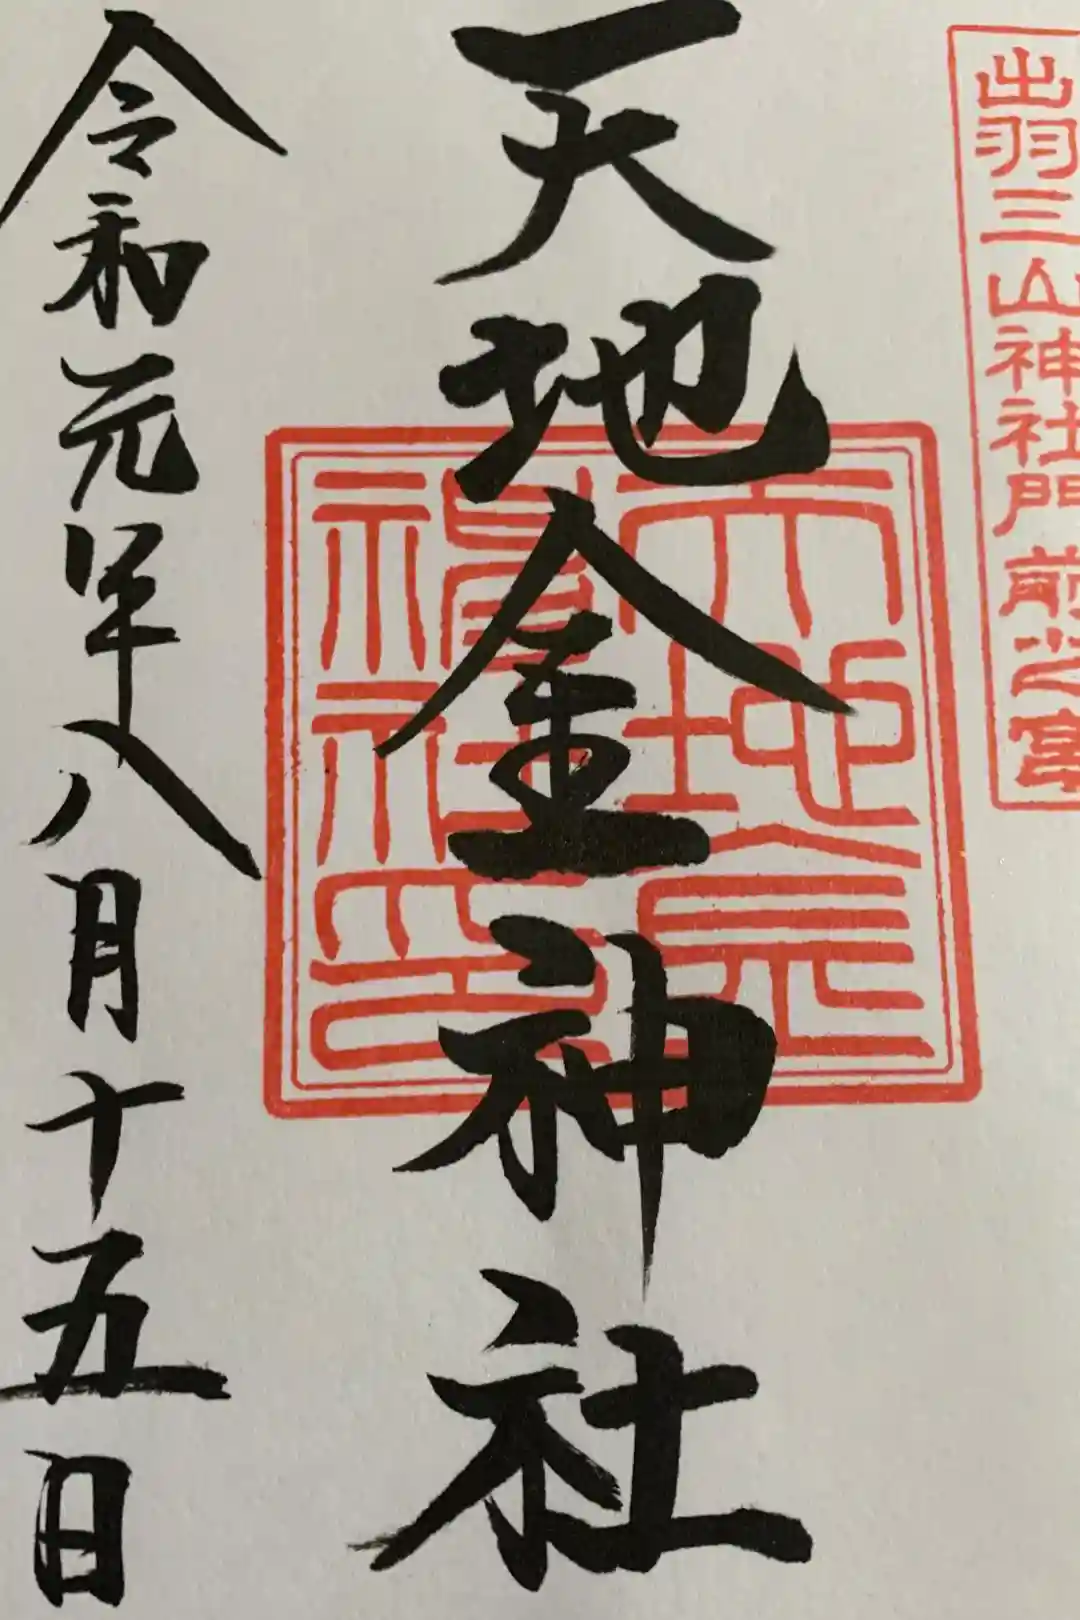 出羽三山神社門前之宮
天地金神社
天地金神社印
令和元年八月十五日